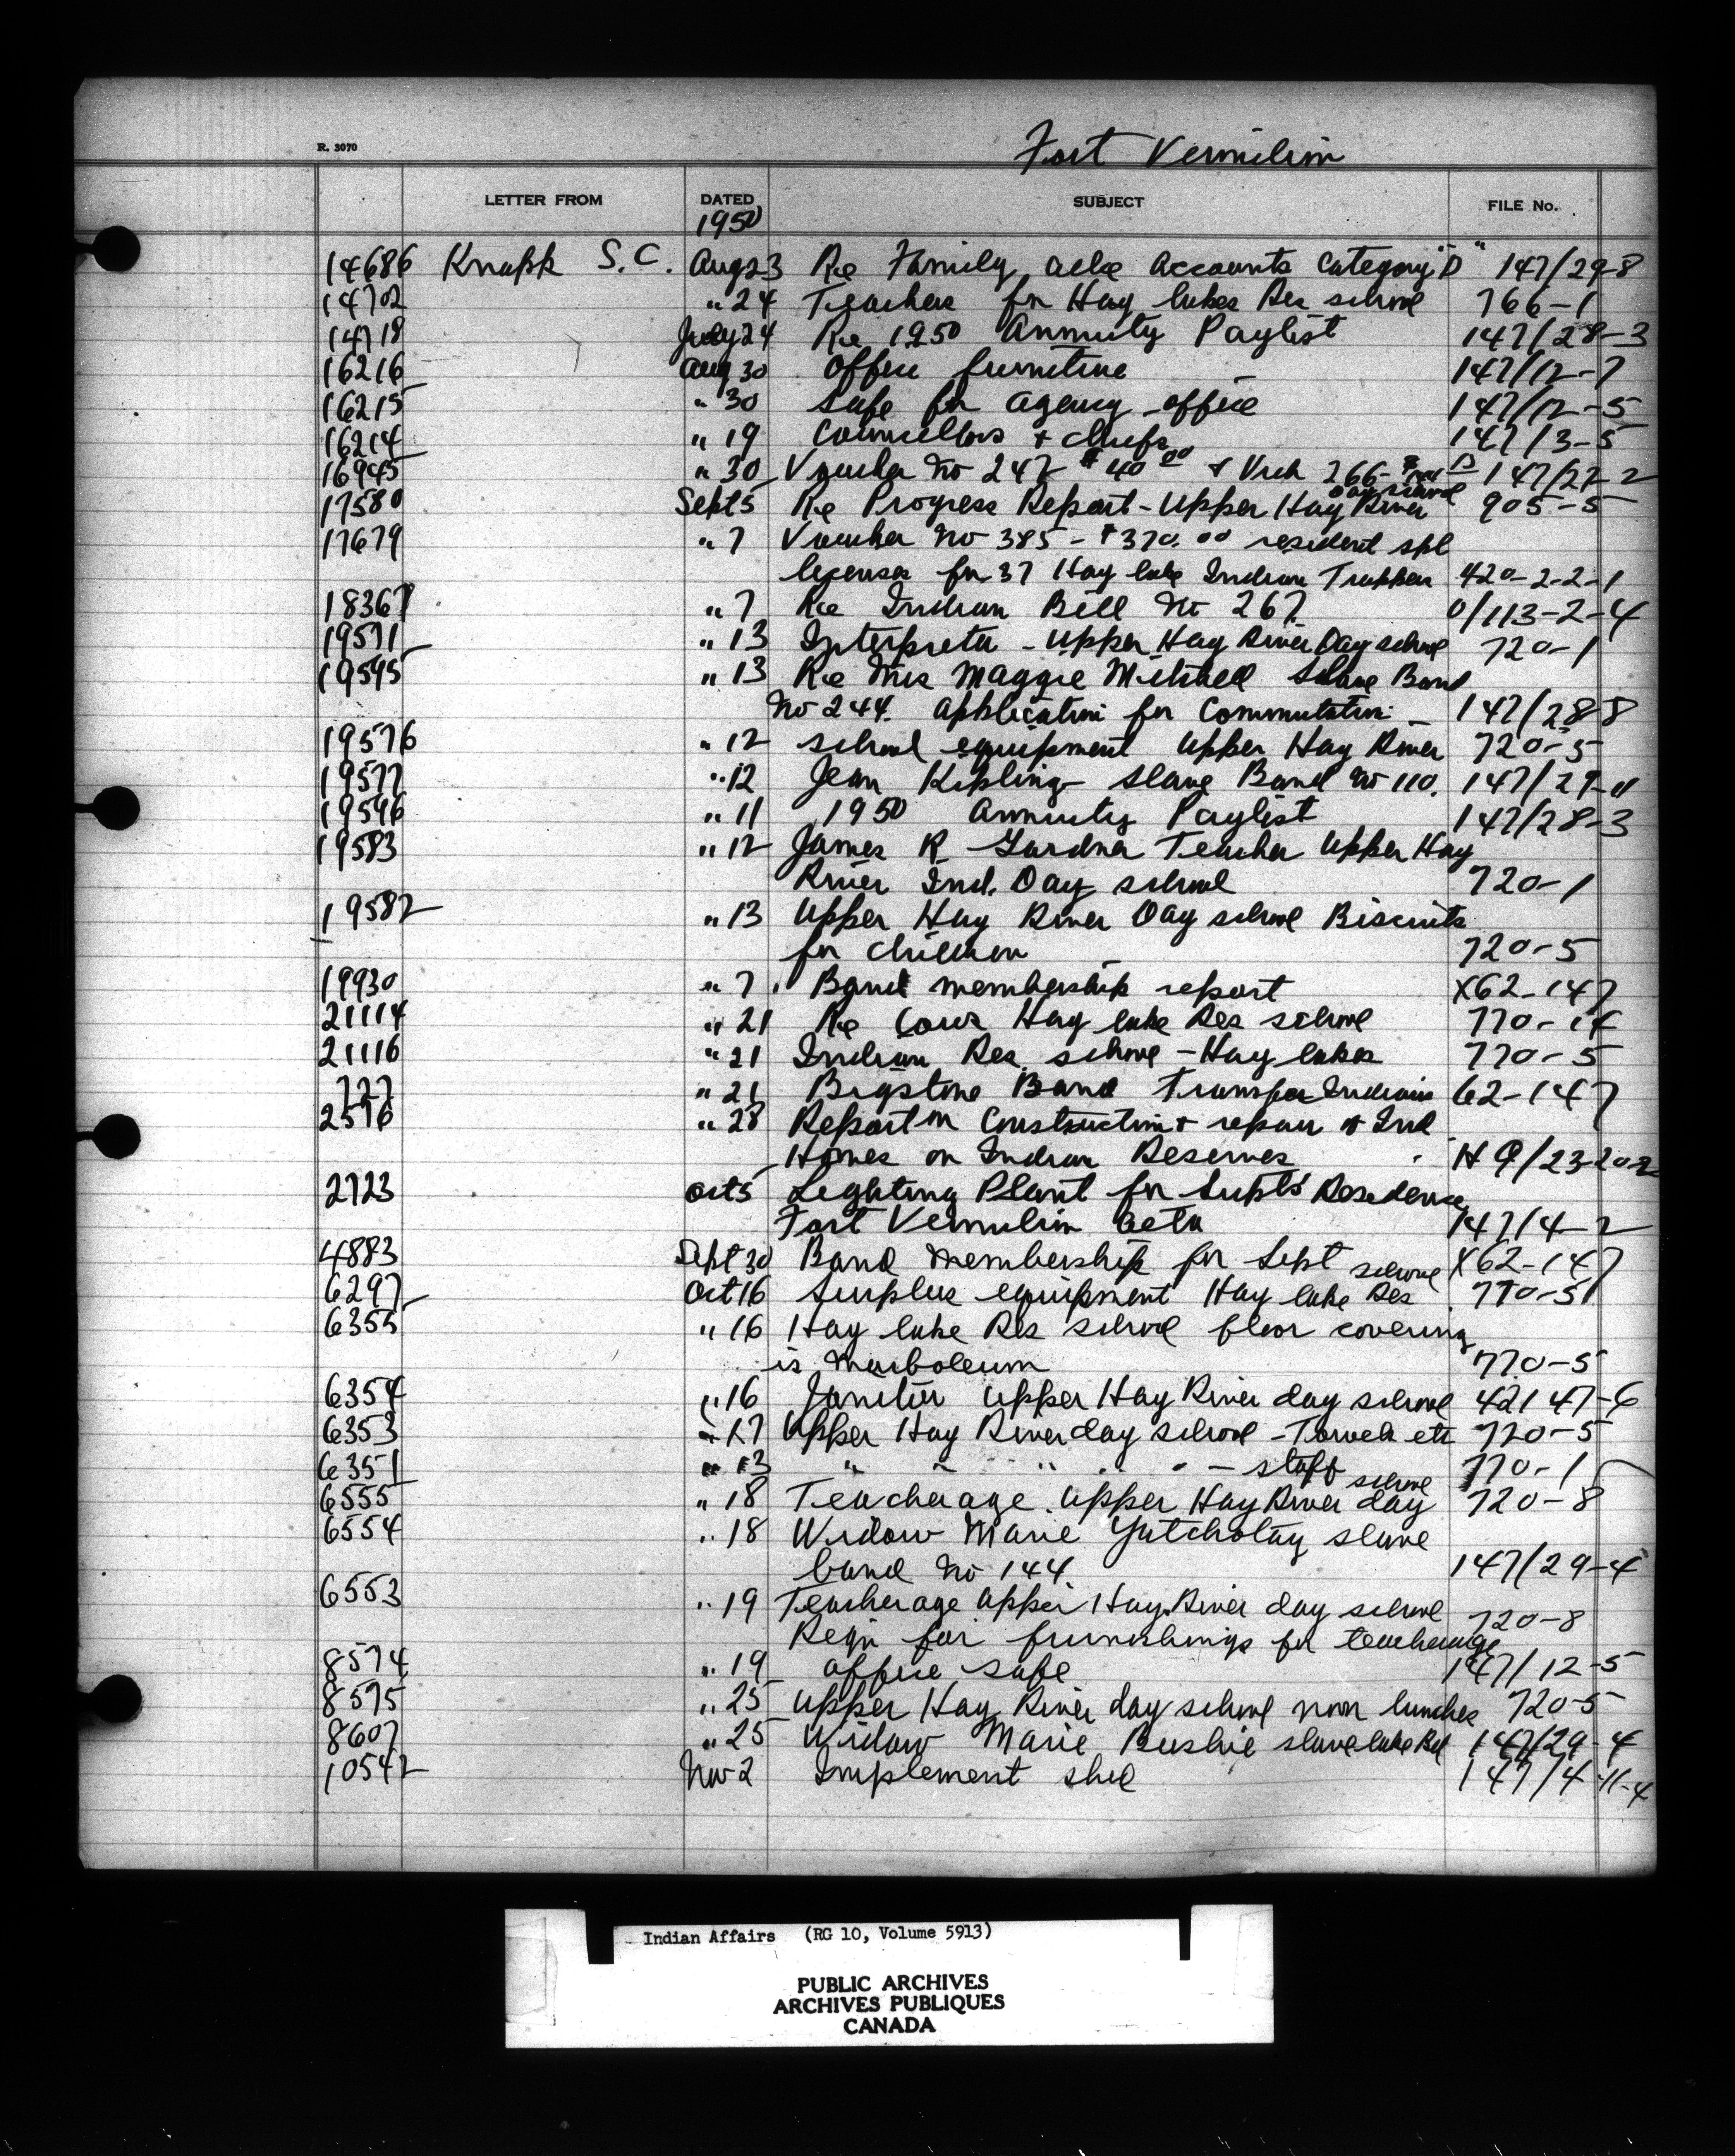 R. 3070
Fort Vermilion
LETTER FROM DATED SUBJECT FILE No.
1950
14686 Knapp S.C. Aug 23 Re Family Allce Accounts Category "D" 147/29-8
14702 " 24 Teachers for Hay Lakes Res school 766-1
14718 July 24 Re 1950 Annuity Paylist 147/28-3
16216 Aug 30 Office furniture 147/12-7
16215 " 30 Safe for agency office 147/12-5
16214 " 19 Councillors + chiefs 147/3-5
16945 " 30 Voucher No 247 $40.00 & Vuch 266- 147/27-2
17580 Sept 5 Re Progress Report - Upper Hay River day school 905-5
17679 " 7 Voucher No 385 - $370.00 resident spl
licenses for 37 Hay lake Indian Trappers 420-2-2-1
18367 " 7 Re Indian Bill No 267. 0/113-2-4
19571 " 13 Interpreter - Upper Hay River Day school 720-1
19595 " 13 Re Mrs Maggie Mitchell Slave Band
No 244. Application for Commutation 147/28-8
19576 " 12 school equipment Upper Hay River 720-5
19577 " 12 Jean Kipling Slave Band No 110. 147/29-11
19596 " 11 1950 Annuity Paylist 147/28-3
19583 " 12 James R Gardner Teacher Upper Hay
River Ind. Day school 720-1
19582 " 13 Upper Hay River Day school Biscuits
for children 720-5
19930 " 7 Band membership report X62-147
21114 " 21 Re Cows Hay lake Res school 770-14
21116 " 21 Indian Res. school - Hay lakes 770-5
727 " 21 Bigstone Band Transfer Indians 62-147
2576 " 28 Report on Construction + repair of Ind
Homes on Indian Reserves HQ/23-20-2
2723 Oct 5 Lighting Plant for Supts' Residence
Fort Vermilion Alta 147/4-2
4883 Sept 30 Band Membership for Sept X62-147
6297 Oct 16 Surplus equipment Hay lake Res school 770-5
6355 " 16 Hay lake Res school floor covering
is Marboleum 770-5
6354 " 16 Janitor Upper Hay River day school 42147-6
6353 " 17 Upper Hay River day school - Towels etc 720-5
6351 " 13 " " " " " - staff 770-1
6555 " 18 Teacherage Upper Hay River day school 720-8
6554 " 18 Widow Marie Yatchotay slave
band No 144. 147/29-4
6553 " 19 Teacherage Upper Hay River day school
Reqn for furnishings for teacherage 720-8
8574 " 19 office safe 147/12-5
8575 " 25 Upper Hay River day school noon lunches 720-5
8607 " 25 Widow Marie Bushie slave lake Bd 147/29-4
10542 Nov 2 Implement shed 147/4-11-4
Indian Affairs (RG 10, Volume 5913)
PUBLIC ARCHIVES
ARCHIVES PUBLIQUES
CANADA